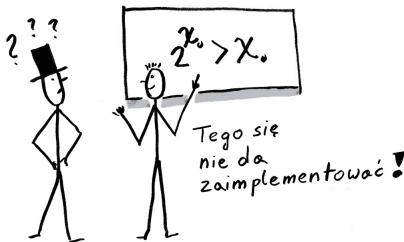 ? ? ?
2^χ₀ > χ₀
Tego się
nie da
zaimplementować!